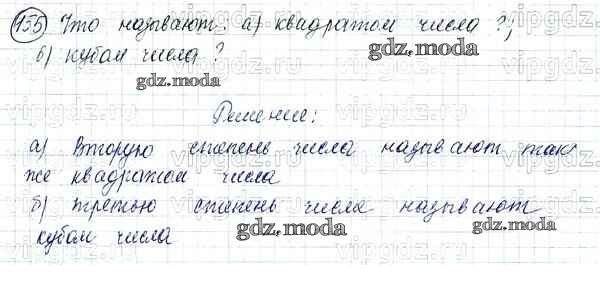 155 Что называют: а) квадратом числа?;
б) кубом числа?
gdz.moda
gdz.moda
Решение:
а) Вторую степень числа называют так
же квадратом числа
б) третью степень числа называют
кубом числа
gdz.moda
gdz.moda